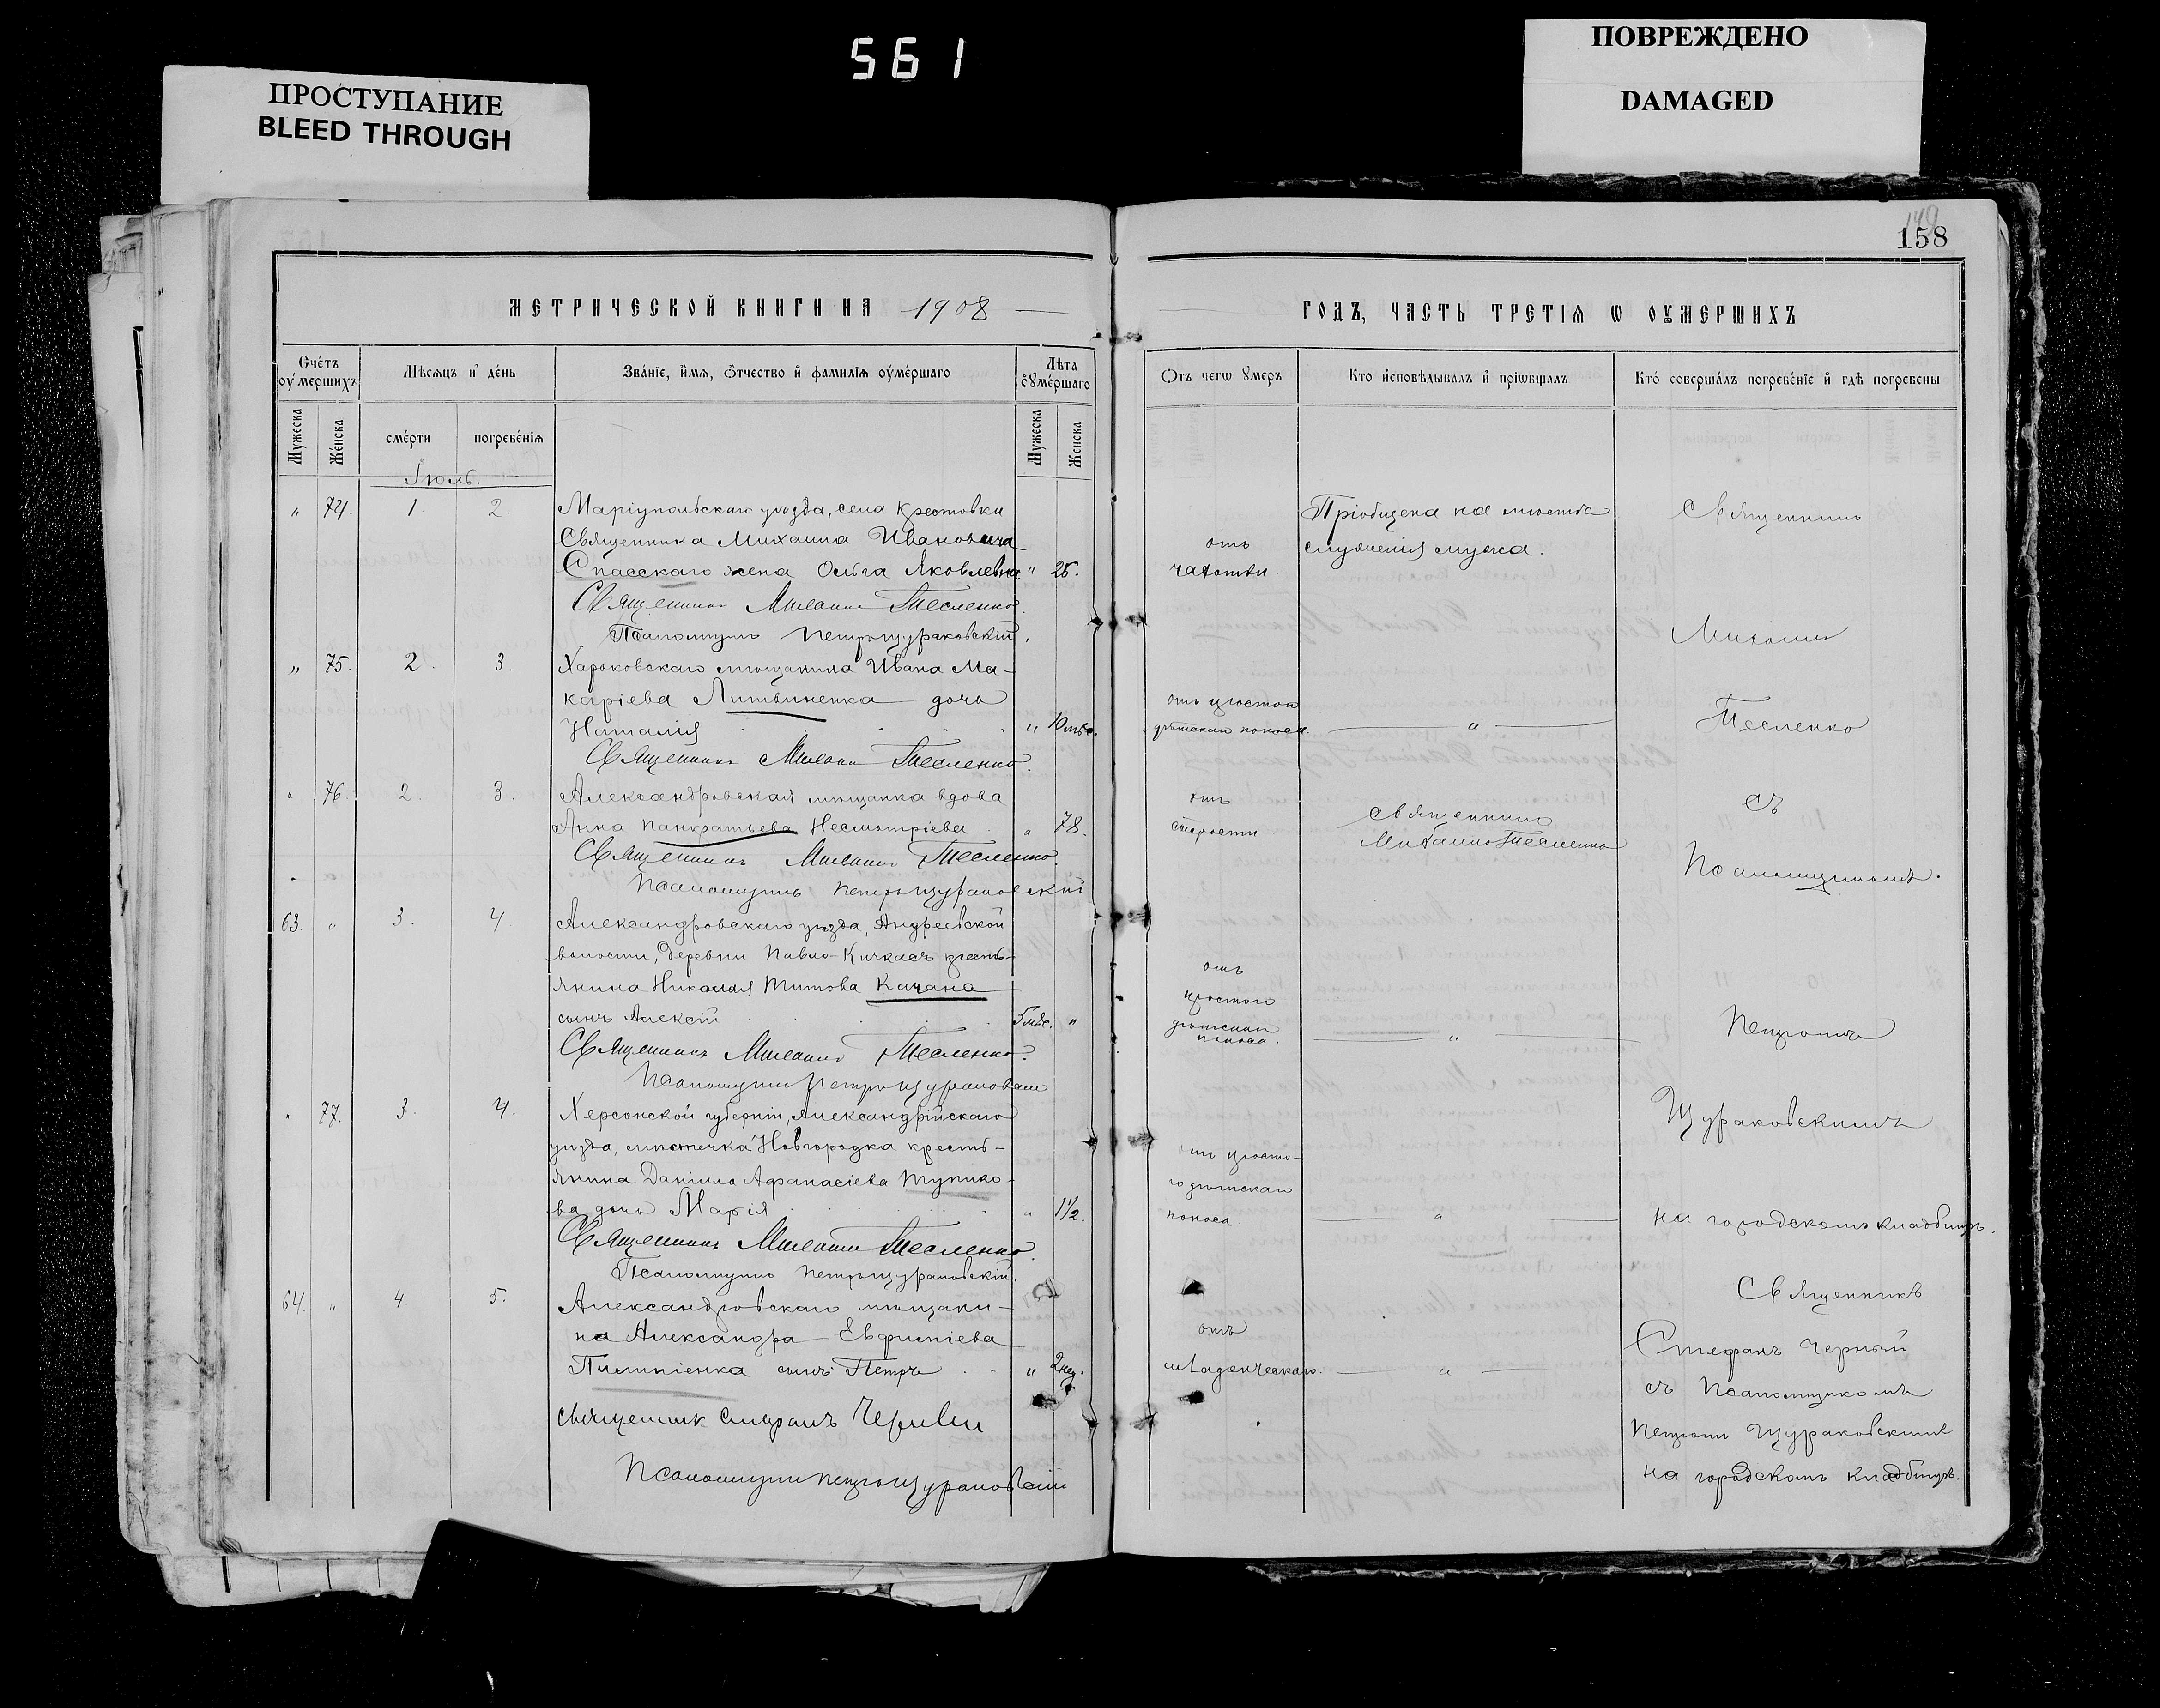 561
ПРОСТУПАНИЕ
BLEED THROUGH
ПОВРЕЖДЕНО
DAMAGED
149
158
МЕТРИЧЕСКОЙ КНИГИ НА 1908
ГОДЪ, ЧАСТЬ ТРЕТІѦ Ѡ ОУМЕРШИХЪ
Счетъ оумершихъ
Мѣсяцъ и день
Званіе, имя, отчество и фамилія оумершаго
Лѣта оумершаго
Отъ чегѡ умеръ
Кто исповѣдывалъ и пріѡбщалъ
Кто совершалъ погребеніе и гдѣ погребены
Мужеска
Женска
смерти
погребенія
Мужеска
Женска
Іюль.
" 74. 1. 2. Маріупольскаго уѣзда, села Крестовки
Священника Михаила Ивановича
Спасскаго жена Ольга Яковлевна " 25.
отъ
чахотки.
Пріобщена на мѣстѣ
служенія мужа.
Священникъ
Священникъ Михаилъ Тесленко.
Псаломщикъ Петръ Щураковскій.
Михаилъ
" 75. 2. 3. Харьковскаго мѣщанина Ивана Ма-
каріева Литвиненка дочь
Наталія " 10 мѣс.
отъ простаго
дѣтскаго поноса.
"
Тесленко
Священникъ Михаилъ Тесленко.
" 76. 2. 3. Александровская мѣщанка вдова
Анна Панкратьева Несмотріева " 78.
отъ
старости
Священникъ
Михаилъ Тесленко
съ
Священникъ Михаилъ Тесленко.
Псаломщикъ Петръ Щураковскій
Псаломщикомъ.
63. " 3. 4. Александровскаго уѣзда, Андреевской
волости, деревни Павло-Кичкасъ кресть-
янина Николая Титова Качана
сынъ Алексій 5 мѣс. "
отъ
простого
дѣтскаго
поноса.
"
Петромъ
Священникъ Михаилъ Тесленко.
Псаломщикъ Петръ Щураковскій
" 77. 3. 4. Херсонской губерніи, Александрійскаго
уѣзда, мѣстечка Новгородка кресть-
янина Даніила Афанасіева Тупико-
ва дочь Марія " 1½.
отъ просто-
го дѣтскаго
поноса.
"
Щураковскимъ
на городскомъ кладбищѣ.
Священникъ Михаилъ Тесленко.
Псаломщикъ Петръ Щураковскій.
64. " 4. 5. Александровскаго мѣщани-
на Александра Евфиміева
Пилипіенка сынъ Петръ " 2 нед.
отъ
младенческаго.
"
Священникъ
Стефанъ Черный
съ Псаломщикомъ
Петромъ Щураковскимъ
на городскомъ кладбищѣ.
Священник Стефанъ Черный
Псаломщикъ Петръ Щураковскій